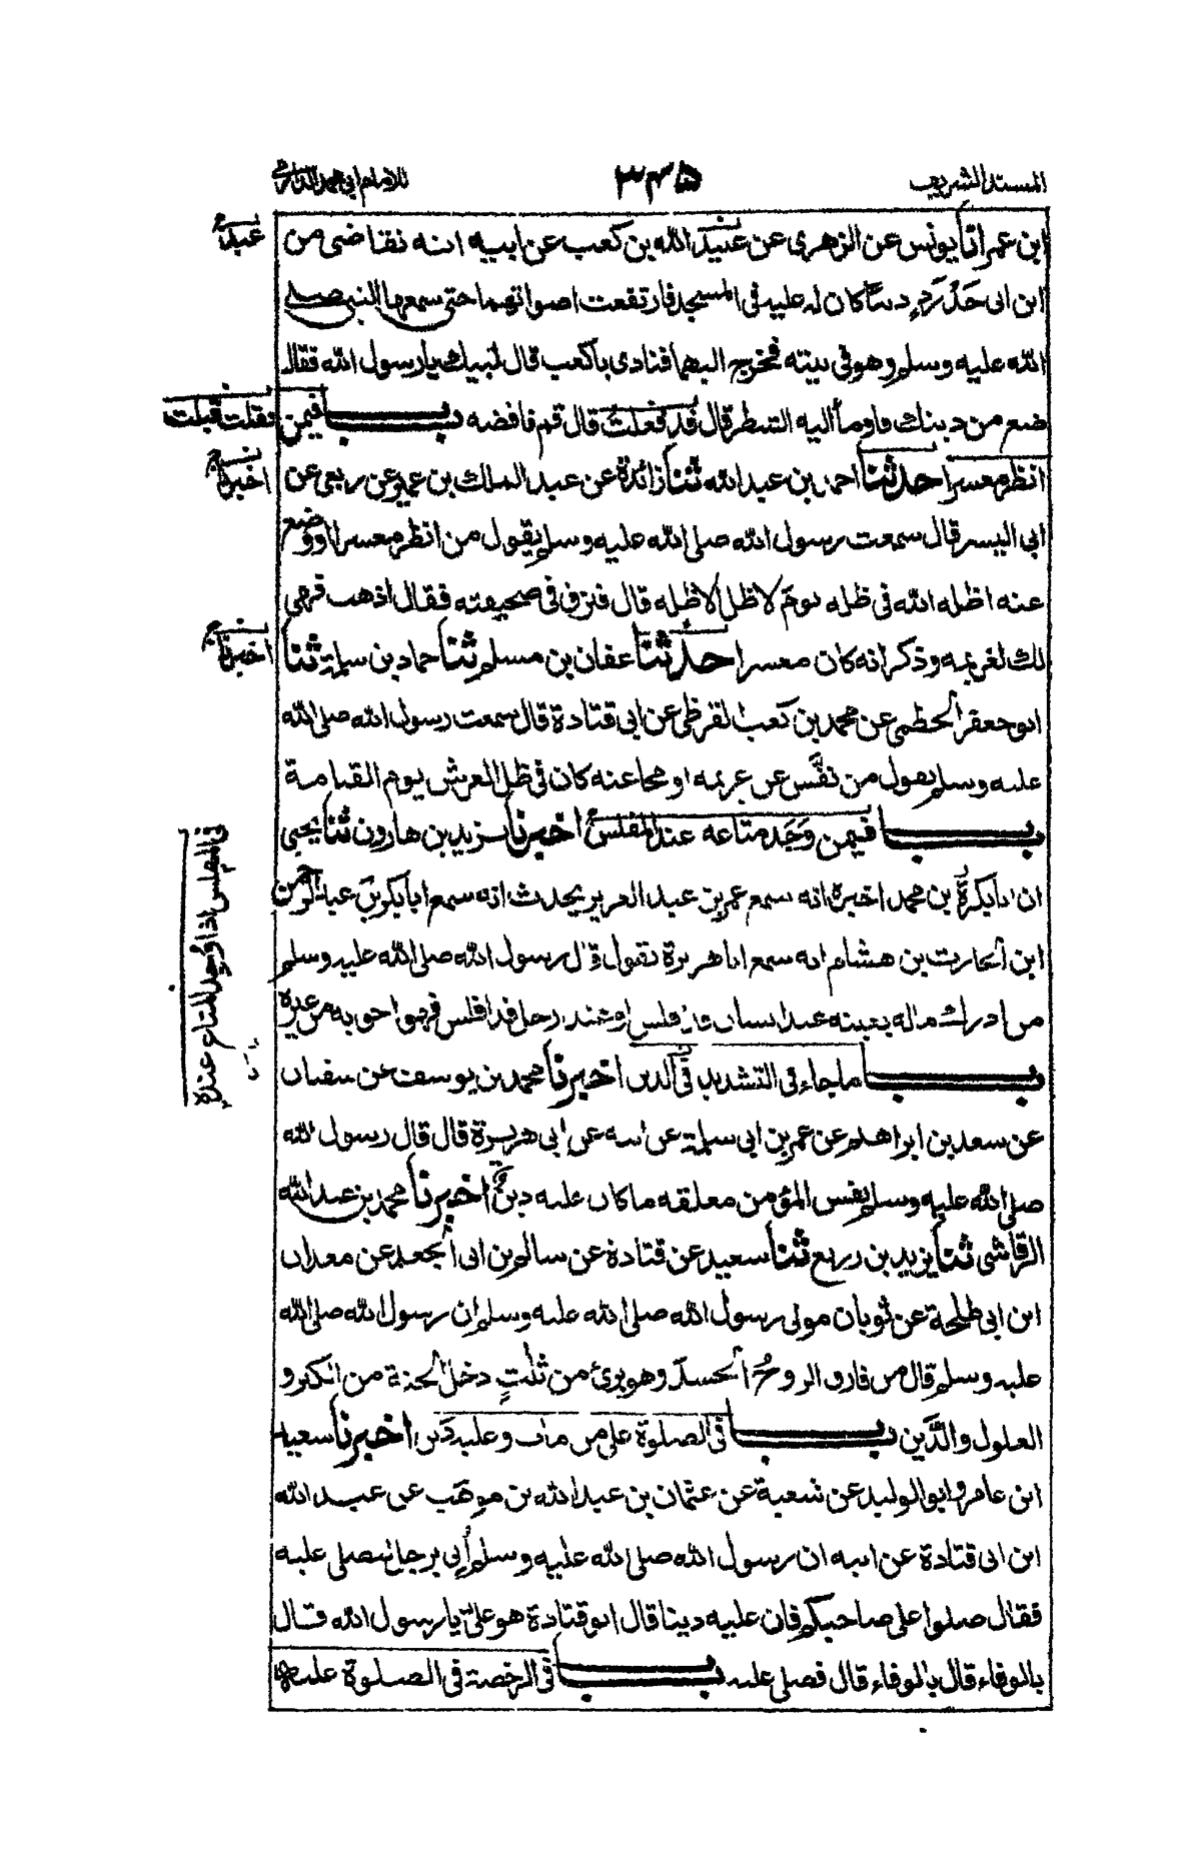 المسند الشريف
۳۴۵
للامام ابي محمد الدارمي
ابن عمر انا يونس عن الزهري عن عبيد الله بن كعب عن ابيه انه تقاضى من
ابن ابي حَدْرَدٍ دينًا كان له عليه في المسجد فارتفعت اصواتهما حتى سمعها النبي صلى
الله عليه وسلم وهو في بيته فخرج اليهما فنادى يا كعب قال لبيك يا رسول الله فقال
ضع من دينك فاومأ اليه الشطر قال قد فعلت قال قم فاقضه باب فيمن
انظر معسرا حدثنا احمد بن عبد الله ثنا زائدة عن عبد الملك بن عمير عن ربعي عن
ابي اليسر قال سمعت رسول الله صلى الله عليه وسلم يقول من انظر معسرا او وضع
عنه اظله الله في ظله يوم لا ظل الا ظله قال فبزق في صحيفته فقال اذهب فهي
لك لغريمه وذكر انه كان معسرا حدثنا عفان بن مسلم ثنا حماد بن سلمة ثنا
ابو جعفر الخطمي عن محمد بن كعب القرظي عن ابي قتادة قال سمعت رسول الله صلى الله
عليه وسلم يقول من نفَّس عن غريمه او محا عنه كان في ظل العرش يوم القيامة
باب فيمن وَجَد متاعه عند المفلس اخبرنا يزيد بن هارون ثنا يحيى
ان ابا بكر بن محمد اخبره انه سمع عمر بن عبد العزيز يحدث انه سمع ابا بكر بن عبد الرحمن
ابن الحارث بن هشام انه سمع ابا هريرة يقول قال رسول الله صلى الله عليه وسلم
من ادرك ماله بعينه عند انسان قد افلس او عند رجل قد افلس فهو احق به من غيره
باب ما جاء في التشديد في الدين اخبرنا محمد بن يوسف عن سفيان
عن سعد بن ابراهيم عن عمر بن ابي سلمة عن ابيه عن ابي هريرة قال قال رسول الله
صلى الله عليه وسلم نفس المؤمن معلقه ما كان عليه دين اخبرنا محمد بن عبد الله
الرقاشي ثنا يزيد بن زريع ثنا سعيد عن قتادة عن سالم بن ابي الجعد عن معدان
ابن ابي طلحة عن ثوبان مولى رسول الله صلى الله عليه وسلم ان رسول الله صلى الله
عليه وسلم قال من فارق الروحُ الجسدَ وهو برئ من ثلٰثٍ دخل الجنة من الكبر و
الغلول والدَّين باب في الصلوة على من مات وعليه دَين اخبرنا سعيد
ابن عامر وابو الوليد عن شعبة عن عثمان بن عبد الله بن موهَب عن عبد الله
ابن ابي قتادة عن ابيه ان رسول الله صلى الله عليه وسلم اُتي برجل ليصلي عليه
فقال صلوا على صاحبكم فان عليه دينا قال ابو قتادة هو عليّ يا رسول الله قال
بالوفاء قال بالوفاء قال فصلى عليه باب في الرخصة في الصلوة عليهم
عبد
فقلت قبلت
اخبرنا
اخبرنا
في المفلس اذا وُجد المتاع عنده